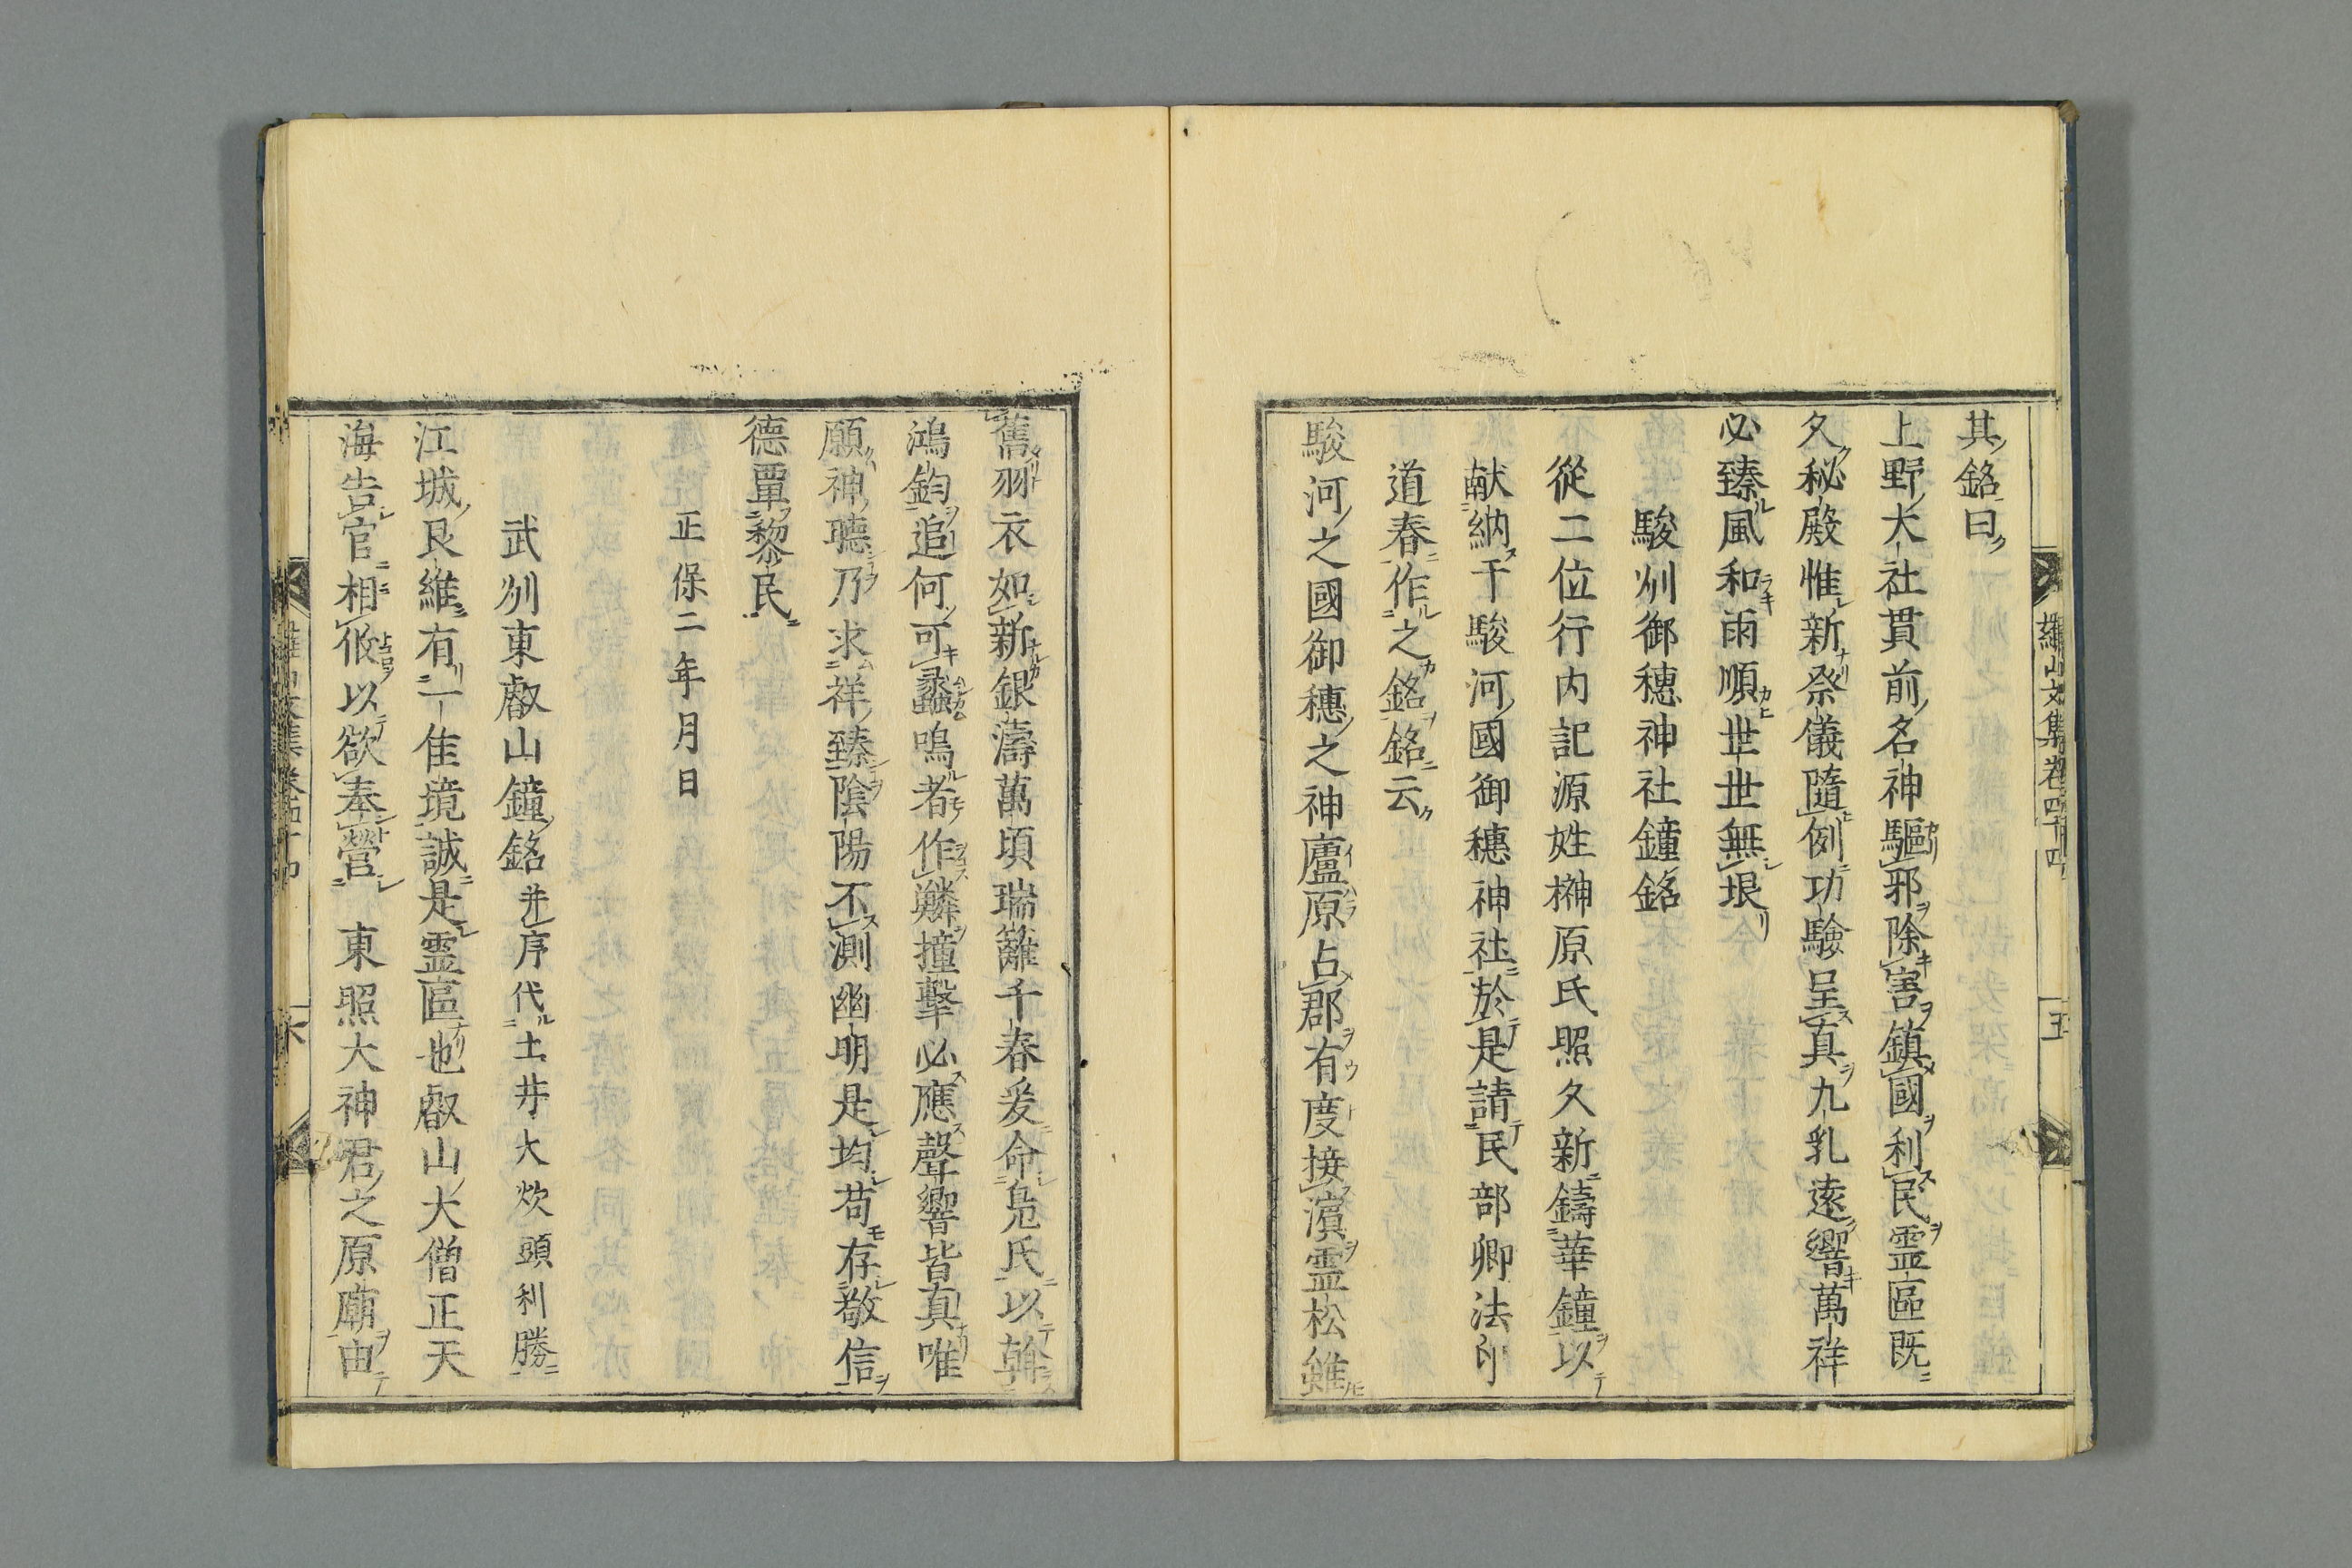 其銘曰
上野大社貫前名神驅邪除害鎮國利民霊區既
久秘殿惟新祭儀隨例功驗呈真九乳遠響萬祥
必臻風和雨順世世無垠
駿州御穗神社鐘銘
從二位行内記源姓榊原氏照久新鑄華鐘以
献納于駿河國御穗神社於是請民部卿法印
道春作之銘銘云
駿河之國御穗之神廬原占郡有度接濵霊松雖
舊羽衣如新銀濤萬頃瑞籬千春爰命鳧氏以斡
鴻鈞追何可蠡鳴者作鱗撞擊必應聲響皆真唯
願神聽乃求祥臻陰陽不測幽明是均苟存敬信
德覃黎民
正保二年月日
武州東叡山鐘銘并序代土井大炊頭利勝
江城艮維有一佳境誠是霊區也叡山大僧正天
海告官相攸以欲奉營 東照大神君之原廟由
羅山文集卷四十四 五